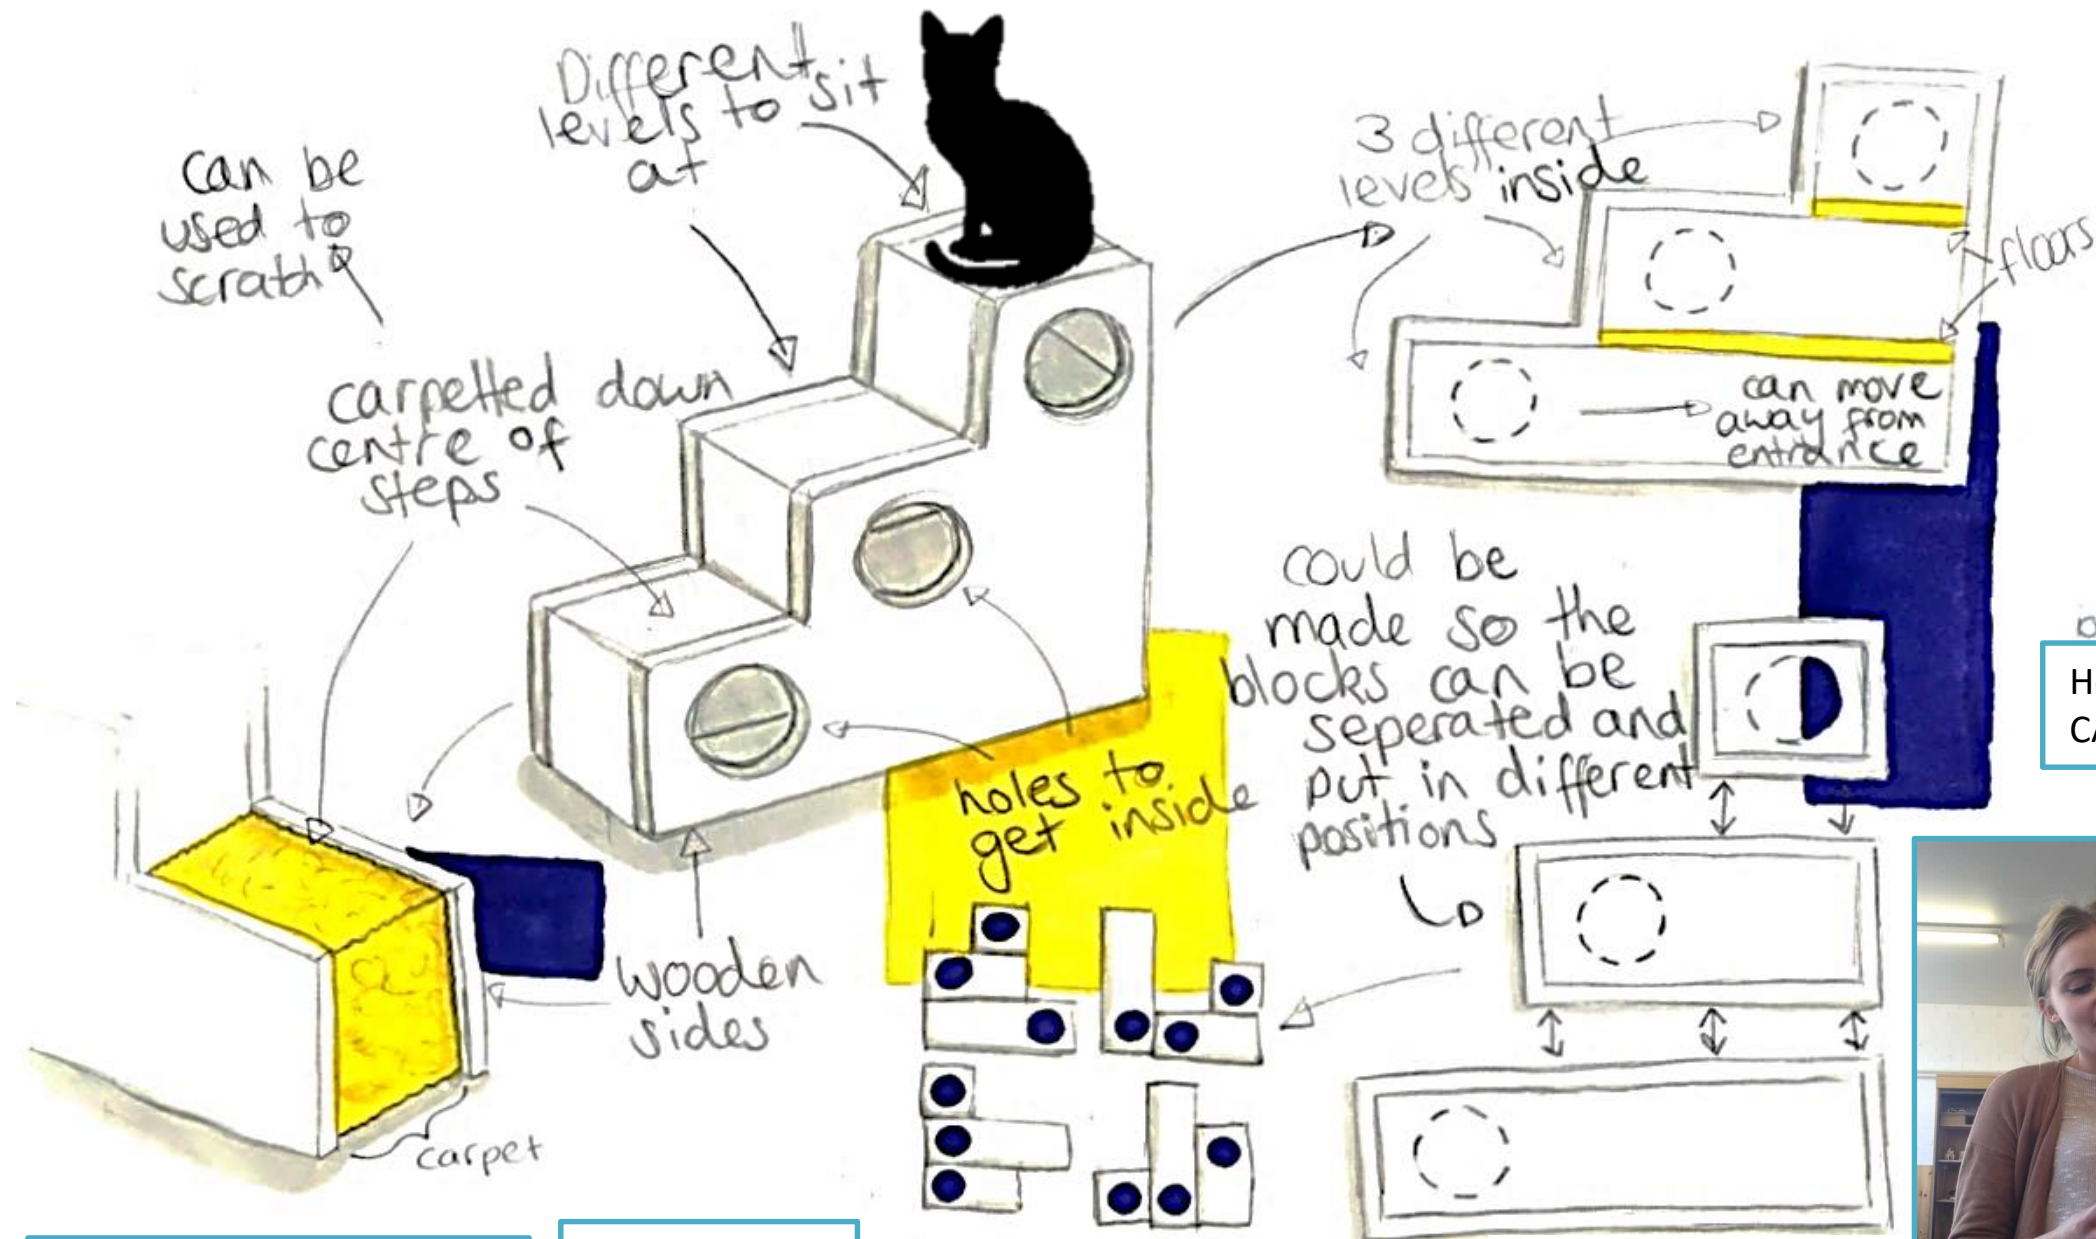 Different
levels to sit
at
can be
used to
scratch
carpetted down
centre of
steps
3 different
levels inside
floors
can move
away from
entrance
could be
made so the
blocks can be
seperated and
put in different
positions
holes to
get inside
wooden
sides
carpet
H
CA